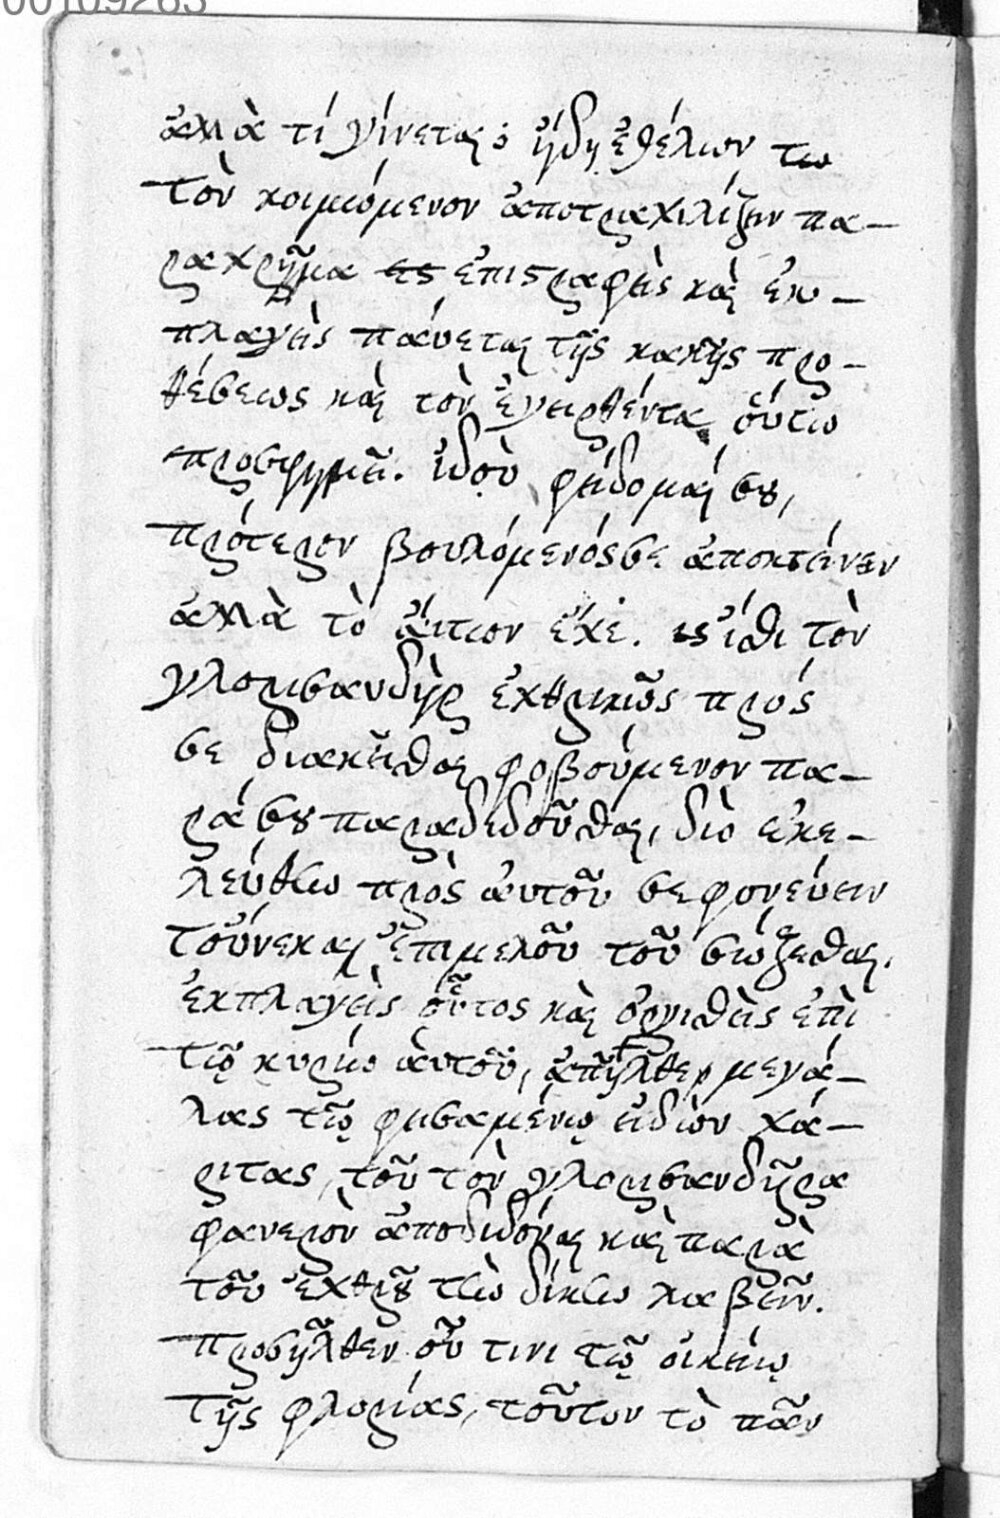 00109263
ἀλλὰ τί γίνεται; ἤδη ἐθέλων τω
τὸν κοιμώμενον ἀποτραχιλίζειν πα-
ραχρῆμα ἐπιστραφεὶς καὶ ἐκ-
πλαγεὶς παύεται τῆς κακῆς προ-
θέσεως καὶ τὸν ἐγερθέντα οὕτω
προσφημεῖ. ἰδοὺ φείδομαί σου,
πρότερον βουλόμενός σε ἀποκτείνειν
ἀλλὰ τὸ αἴτιον ἔχε. ἴσθι τὸν
γλορισανδὴρ ἐχθρικῶς πρός
σε διακεῖσθαι φοβούμενον πα-
ρά σου παραδιδοῦσθαι, διὸ ἐκε-
λεύσθω πρὸς αὐτοῦ σε φονεύειν
τοὔνεκα ἐπιμελοῦ τοῦ σώζεσθαι.
ἐκπλαγεὶς οὗτος καὶ ὀργισθεὶς ἐπὶ
τῷ κυρίῳ αὐτοῦ, ἀπῆλθεν μεγά-
λας τῷ φεισαμένῳ εἰδὼν χά-
ριτας, τοῦ τὸν γλορισανδῆρα
φανερὸν ἀποδιδόναι καὶ παρὰ
τοῦ ἐχθροῦ τὴν δίκην λαβεῖν.
προσῆλθεν οὖν τινι τῷ οἰκείῳ
τῆς φλορίας, τοῦτον τὸ πᾶν